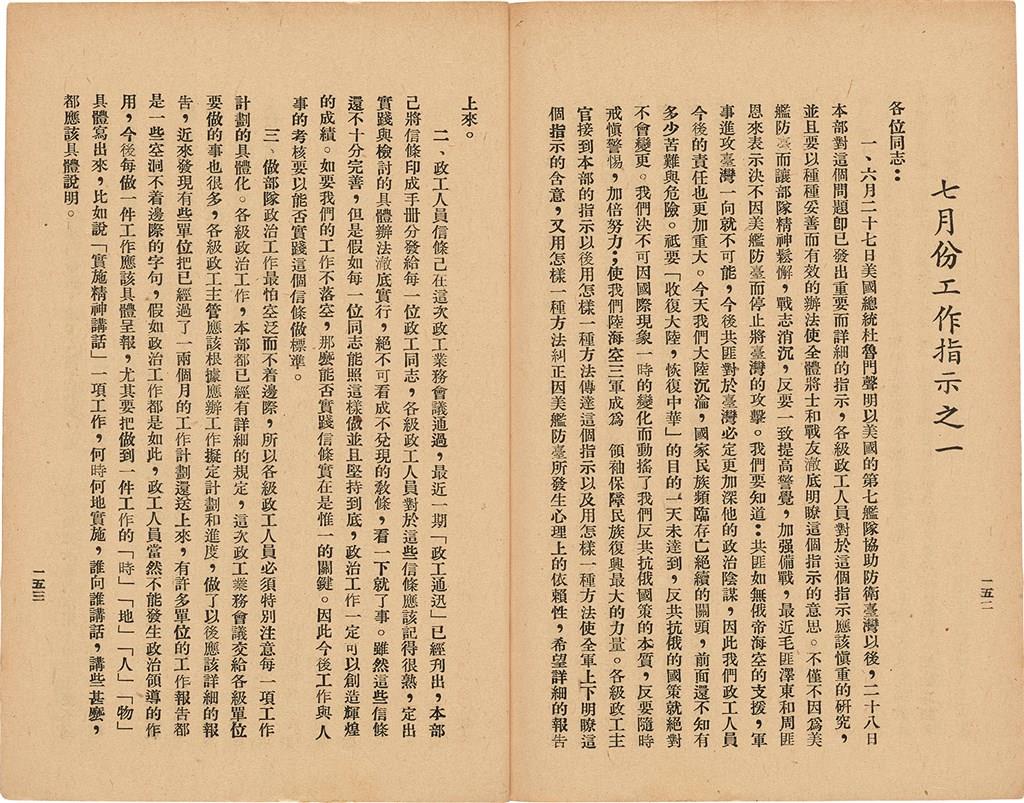 七月份工作指示之一
各位同志：
一、六月二十七日美國總統杜魯門聲明以美國的第七艦隊協助防衛臺灣以後，二十八日
本部對這個問題卽已發出重要而詳細的指示，各級政工人員對於這個指示應該愼重的硏究，
並且要以種種妥善而有效的辦法使全體將士和戰友澈底明瞭這個指示的意思。不僅不因爲美
艦防臺而讓部隊精神鬆懈，戰志消沉，反要一致提高警覺，加强備戰，最近毛匪澤東和周匪
恩來表示決不因美艦防臺而停止將臺灣的攻擊。我們要知道：共匪如無俄帝海空的支援，軍
事進攻臺灣一向就不可能，今後共匪對於臺灣必定更加深他的政治陰謀，因此我們政工人員
今後的責任也更加重大。今天我們大陸沉淪，國家民族頻臨存亡絕續的關頭，前面還不知有
多少苦難與危險。祇要「收復大陸，恢復中華」的目的一天未達到，反共抗俄的國策就絕對
不會變更。我們決不可因國際現象一時的變化而動搖了我們反共抗俄國策的本質，反要隨時
戒愼警惕，加倍努力；使我們陸海空三軍成爲　領袖保障民族復興最大的力量。各級政工主
官接到本部的指示以後用怎樣一種方法傳達這個指示以及用怎樣一種方法使全軍上下明瞭這
個指示的含意，又用怎樣一種方法糾正因美艦防臺所發生心理上的依賴性，希望詳細的報告
一五二
上來。
二、政工人員信條已在這次政工業務會議通過，最近一期「政工通迅」已經刊出，本部
己將信條印成手册分發給每一位政工同志，各級政工人員對於這些信條應該記得很熟，定出
實踐與檢討的具體辦法澈底實行，絕不可看成不兌現的敎條，看一下就了事。雖然這些信條
還不十分完善，但是假如每一位同志能照這樣做並且堅持到底，政治工作一定可以創造輝煌
的成績。如要我們的工作不落空，那麼能否實踐信條實在是惟一的關鍵。因此今後工作與人
事的考核要以能否實踐這個信條做標準。
三、做部隊政治工作最怕空泛而不着邊際，所以各級政工人員必須特別注意每一項工作
計劃的具體化。各級政治工作，本部都已經有詳細的規定，這次政工業務會議交給各級單位
要做的事也很多，各級政工主管應該根據應辦工作擬定計劃和進度，做了以後應該詳細的報
告，近來發現有些單位把已經過了一兩個月的工作計劃還送上來，有許多單位的工作報告都
是一些空洞不着邊際的字句，假如政治工作都是如此，政工人員當然不能發生政治領導的作
用，今後每做一件工作應該具體呈報，尤其要把做到一件工作的「時」「地」「人」「物」
具體寫出來，比如說「實施精神講話」一項工作，何時何地實施，誰向誰講話，講些甚麼，
都應該具體說明。
一五三